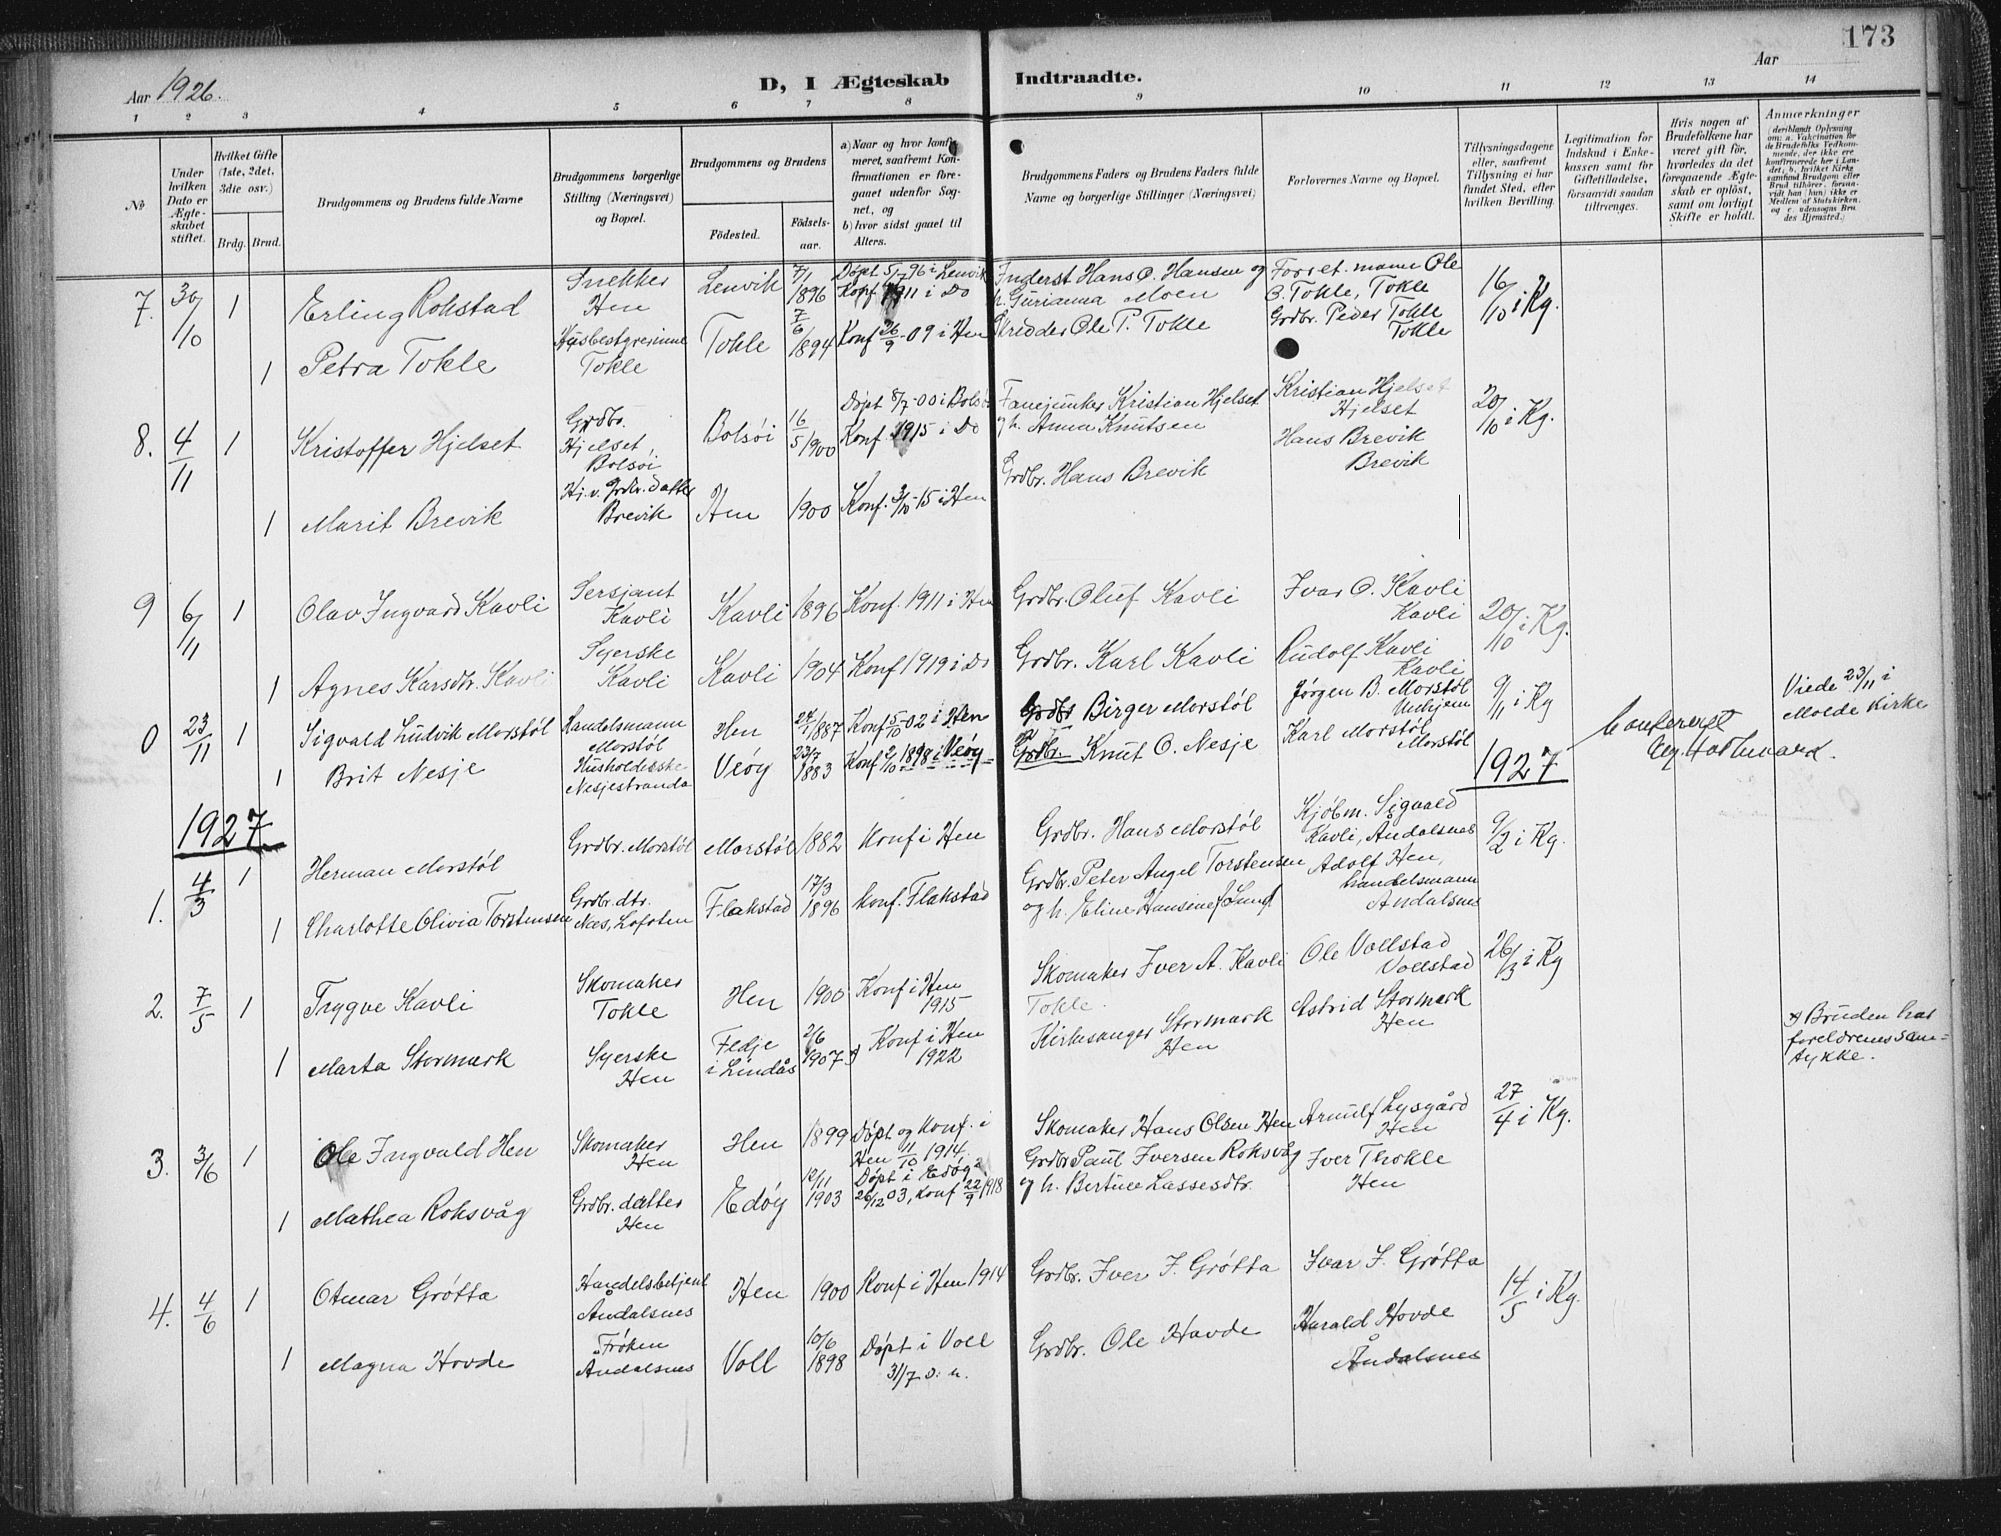 173
Aar 1926.
D, I Ægteskab Indtraadte.
Aar
1 2 3 4 5 6 7 8 9 10 11 12 13 14
№
Under hvilken Dato er Ægteskabet stiftet.
Hvilket Gifte (1ste, 2det, 3die osv.)
Brdg. Brud.
Brudgommens og Brudens fulde Navne
Brudgommens borgerlige Stilling (Næringsvei) og Bopæl.
Brudgommens og Brudens
Födested.
Födselsaar.
a) Naar og hvor konfirmeret, saafremt Konfirmationen er foregaaet udenfor Sognet, og
b) hvor sidst gaaet til Alters.
Brudgommens Faders og Brudens Faders fulde Navne og borgerlige Stillinger (Næringsvei)
Forlovernes Navne og Bopæl.
Tillysningsdagene eller, saafremt Tillysning ei har fundet Sted, efter hvilken Bevilling.
Legitimation for Indskud i Enkekassen samt for Giftetilladelse, forsaavidt saadan tiltrænges.
Hvis nogen af Brudefolkene har været gift før, hvorledes da det foregaaende Ægteskab er oplöst, samt om lovligt Skifte er holdt.
Anmærkninger
(deriblandt Oplysning om: a. Vakcination for de Brudefolks Vedkommende, der ikke ere konfirmerede her i Landet; b. hvilket Kirkesamfund Brudgom eller Brud tilhører, forsaavidt han (hun) ikke er Medlem af Statskirken, og c. udensogns Brudes Hjemsted.)
7. 30/10 1 Erling Rokstad Snekker Hen Lenvik 7/1 1896 Døpt 5/7 96 i Lenvik Konf 1911 i Do Inderst Hans O. Hansen og h. Gurianna Moen Forret.mann Ole O. Tokle, Tokle 16/10 i Kg.
1 Petra Tokle Husbestyrerinne Tokle Tokle 7/6 1894 Konf 26/9-09 i Hen Skredder Ole P. Tokle Grdbr. Peder Tokle Tokle
8. 4/11 1 Kristoffer Hjelset Grdbr. Hjelset, Bolsøi Bolsøi 16/5 1900 Døpt 8/7-00 i Bolsø Konf 1915 i Do Fanejunker Kristian Hjelset og h. Anna Knutsen Kristian Hjelset Hjelset 20/10 i Kg.
1 Marit Brevik Hj.v. Grdbr.datter Brevik Hen 1900 Konf. 3/10-15 i Hen Grdbr. Hans Brevik Hans Brevik Brevik
9 6/11 1 Olav Ingvard Kavli Sersjant Kavli Kavli 1896 Konf 1911 i Hen Grdbr. Oluf Kavli Ivar O. Kavli Kavli 20/10 i Kg.
1 Agnes Karsdtr. Kavli Syerske Kavli Kavli 1904 Konf 1919 i Do Grdbr. Karl Kavli Rudolf Kavli Kavli
0 23/11 1 Sigvald Ludvik Morstøl Handelsmann Morstøl Hen 1887 Konf 5/10-02 i Hen Grdbr Birger Morstøl Jørgen B. Morstøl 9/11 i Kg Viede 23/11 i Molde Kirke
1 Brit Nesje Husholderske Nesjestranda Veøy 23/7 1883 Konf 2/10 1898 i Veøy Grdbr. Knut O. Nesje Karl Morstøl Morstøl
1927
1927
1. 4/3 1 Herman Morstøl Grdbr. Morstøl Morstøl 1882 Konf i Hen Grdbr. Hans Morstøl Kjøbm. Sigvald Kavli, Åndalsnes 9/2 i Kg.
1 Charlotte Olivia Torstensen Grdbr. dtr. Næs, Lofoten Flakstad 17/3 1896 Konf. Flakstad Grdbr. Peter Angel Torstensen og h. Eline Hansine Lund Adolf Hen, handelsmann Åndalsnes
2. 7/5 1 Trygve Kavli Skomaker Tokle Hen 1900 Konf i Hen 1915 Skomaker Iver A. Kavli Tokle Ole Vollstad Vollstad 26/3 i Kg
1 Marta Stormark Syerske Hen Fedje i Lindås 2/6 1907 Konf i Hen 1922 Kirkesanger Stormark Hen Astrid Stormark Hen Bruden har foreldrenes samtykke.
3. 3/6 1 Ole Ingvald Hen Skomaker Hen Hen 1899 Døpt og Konf. i Hen 11/10 1914 Skomaker Hans Olsen Hen Arnulf Lysgård Hen 27/4 i Kg.
1 Mathea Roksvåg Grdbr. datter Hen Edøy 12/11 1903 Døpt i Edøy 26/12 03, Konf 22/9 1918 Grdbr Paul Iversen Roksvåg og h. Bertine Lassesdtr. Iver Thokle Hen
4. 4/6 1 Otmar Grøtta Handelsbetjent Åndalsnes Hen 1900 Konf i Hen 1914 Grdbr. Iver I. Grøtta Ivar I. Grøtta 14/5 i Kg.
1 Magna Hovde Frøken Åndalsnes Voll 10/6 1898 Døpt i Voll 31/7 s. å. Grdbr. Ole Hovde Harald Hovde Åndalsnes